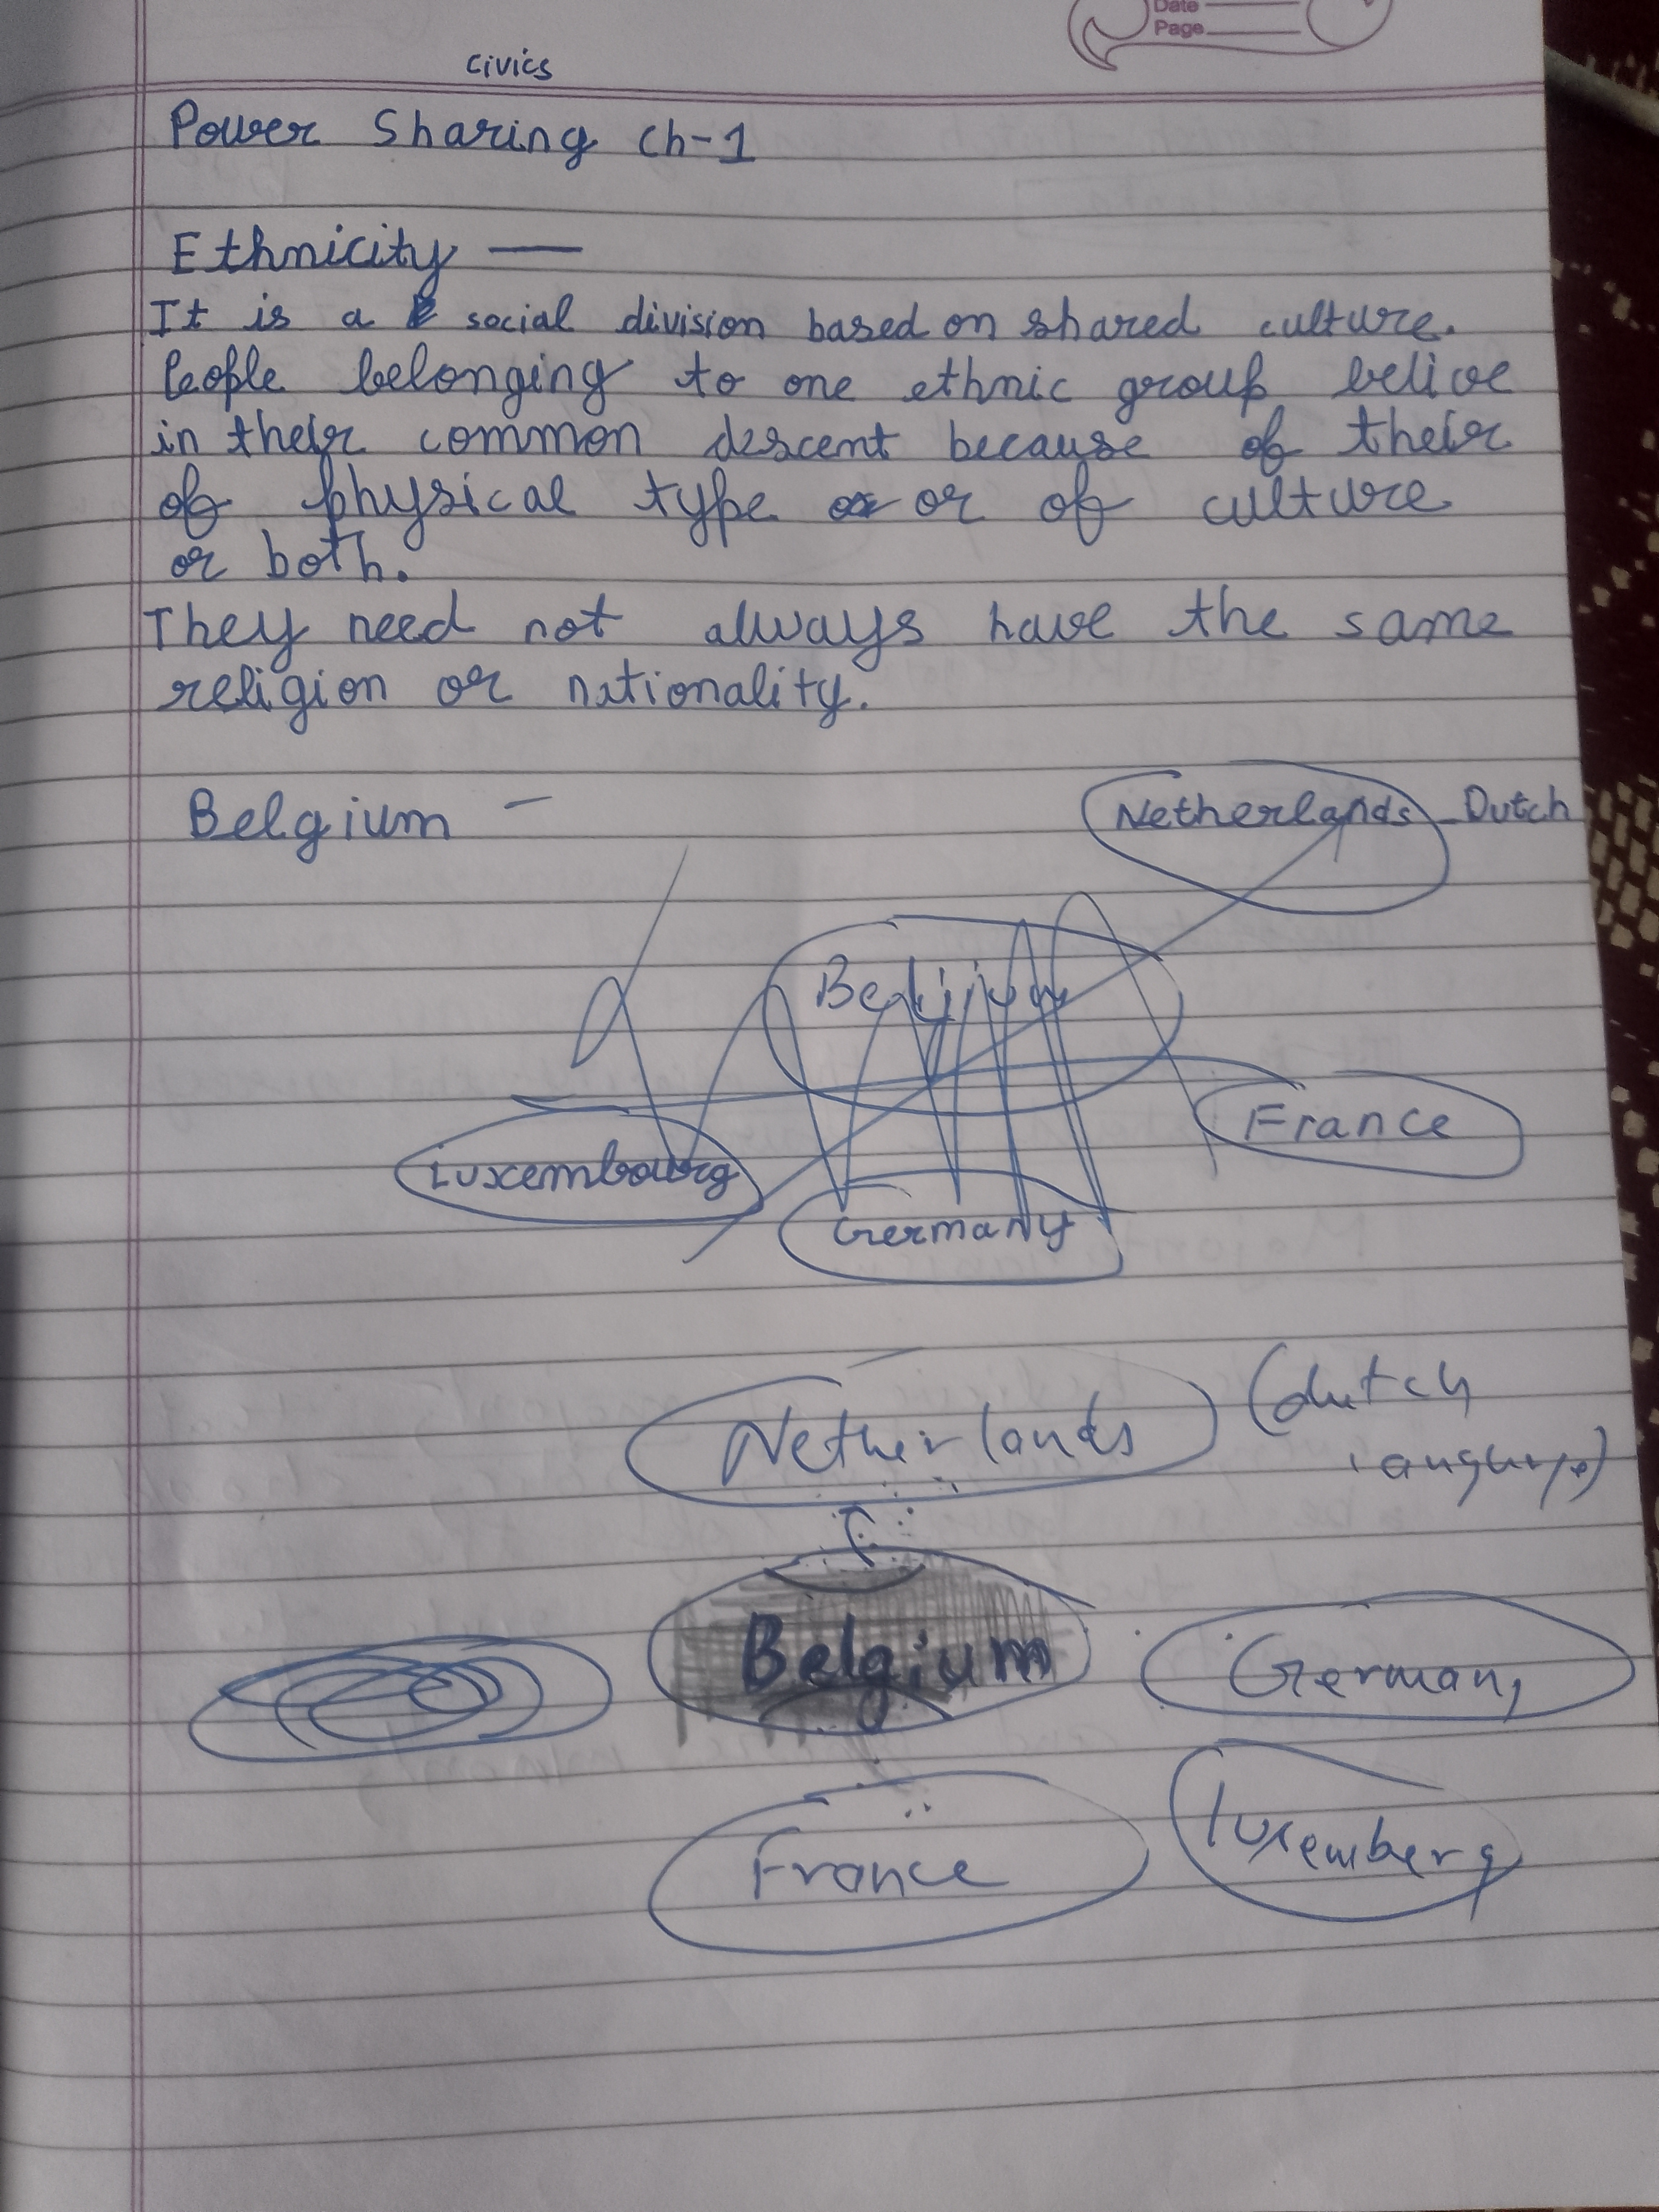 Date
Page
Civics
Power Sharing Ch-1
Ethnicity —
It is a social division based on shared culture.
People belonging to one ethnic group belive
in their common descent because of their
of physical type or of culture
or both.
They need not always have the same
religion or nationality.
Belgium -
Netherlands - Dutch
Belgium
France
Luxembourg
Germany
Netherlands (dutch
language)
Belgium
Germany
luxemberg
France